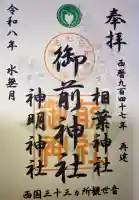 奉拝
西暦九百四十七年 再建
相葉神社
御前神社
神明神社
令和八年 水無月
西国三十三カ所観世音